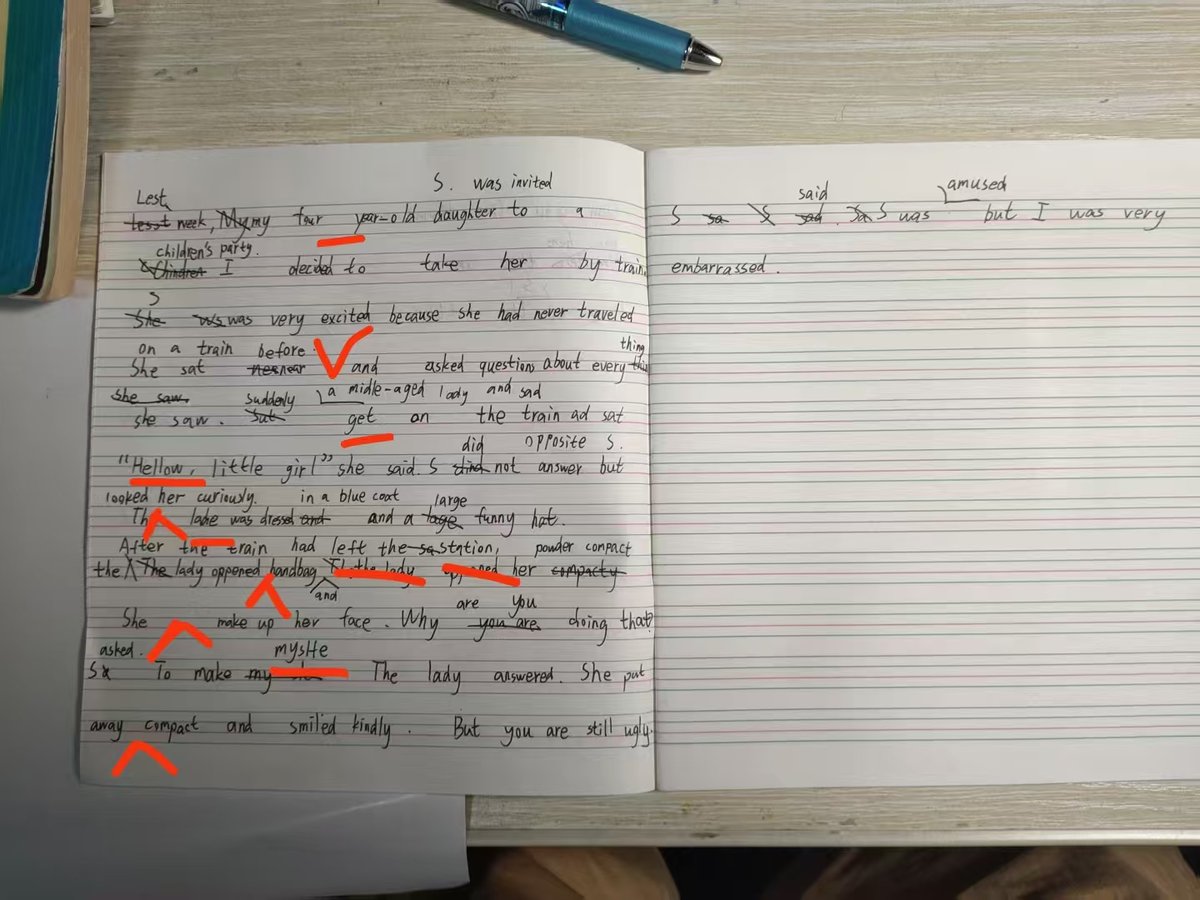 S. was invited
Lest
week, my four year-old daughter to a
children's party.
I decided to take her by train.
S
was very excited because she had never traveled
on a train before.
thing
She sat near and asked questions about every
she saw. suddenly a midle-aged lady and sad
she saw. get on the train ad sat
did opposite S.
"Hellow, little girl" she said. S not answer but
looked her curiously. in a blue coat large
The ladie was dressed and a funny hat.
After the train had left the station, powder compact
the lady oppened handbag the lady oppened her
and
are you
She make up her face. Why doing that?
asked. myslfe
S To make The lady answered. She put
away compact and smiled kindly. But you are still ugly.
said amused
S S was but I was very
embarrassed.